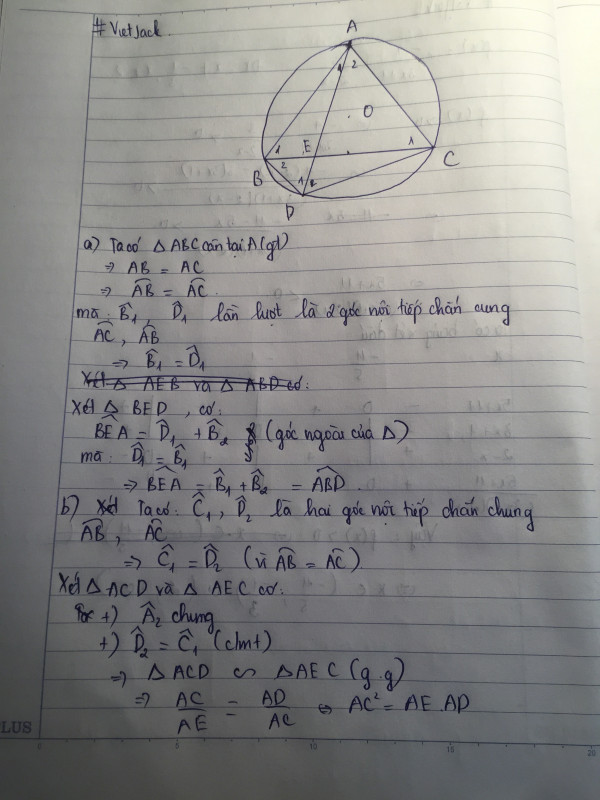 # VietJack.
A
1 2
O
1 E 1
2
B C
1 2
D
a) Ta có △ABC cân tại A (gt)
⇒ AB = AC
⇒ A͡B = A͡C
mà: B̂₁, D̂₁ lần lượt là 2 góc nội tiếp chắn cung
A͡C, A͡B
⇒ B̂₁ = D̂₁
Xét △ AEB và △ ABD có:
Xét △ BED, có:
B͡EA = D̂₁ + B̂₂ (góc ngoài của △)
mà: D̂₁ = B̂₁
⇒ B͡EA = B̂₁ + B̂₂ = A͡BD.
b) Xét Ta có: Ĉ₁, D̂₂ là hai góc nội tiếp chắn chung
A͡B, A͡C
⇒ Ĉ₁ = D̂₂ (vì A͡B = A͡C)
Xét △ ACD và △ AEC có:
+) Â₂ chung
+) D̂₂ = Ĉ₁ (cmt)
⇒ △ ACD ∽ △AEC (g.g)
⇒ AC/AE = AD/AC ⇔ AC² = AE.AD
LUS
0 5 10 15 20